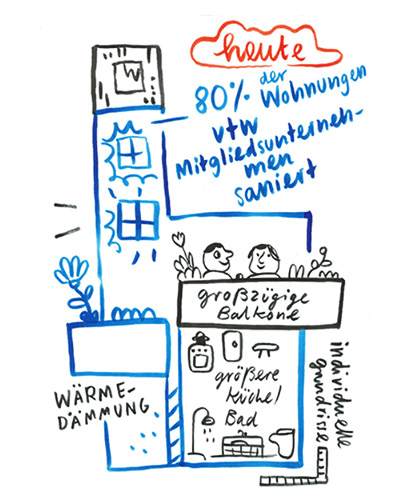 heute
80% der Wohnungen
vtw
Mitgliedsunterneh-
men
saniert
W
großzügige
Balkone
größere
Küche/
Bad
WÄRME-
DÄMMUNG
individuelle
grundrisse